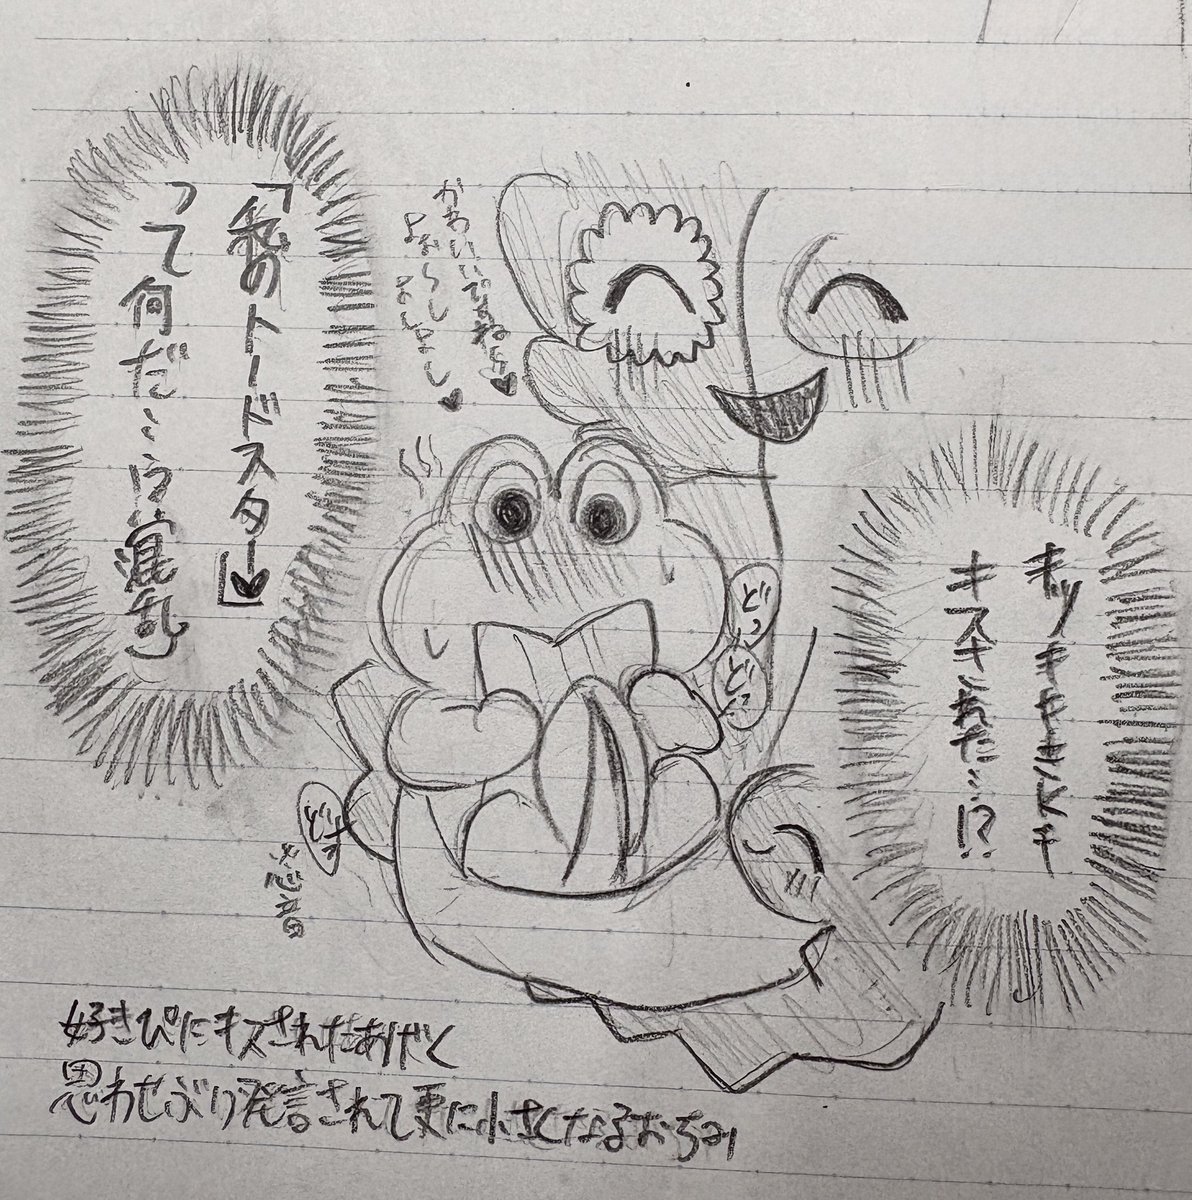 かわいいですねぇ♥
よぉ〜しよしよし♥
「私のトードスター♥」
って何だ…!?(混乱)
キッキキキキスキ
キスされた…!?
どっ
どっ
どす
※心音
好きぴにキスされたあげく
思わせぶり発言されて更に小さくなるおちみ